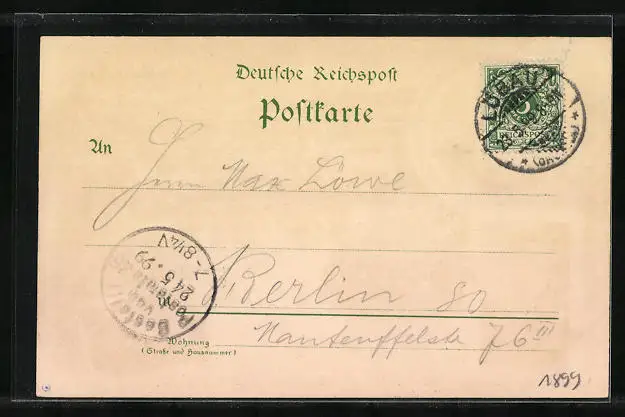 Deutsche Reichspost
Postkarte
An
Herrn Max Löwe
Berlin SO.
Manteuffelstr 76 III
Wohnung
(Straße und Hausnummer)
LÖBAU
5
REICHSPOST
Bestellt
vom
Postamte
24 5. 99
7-8¼V
1899